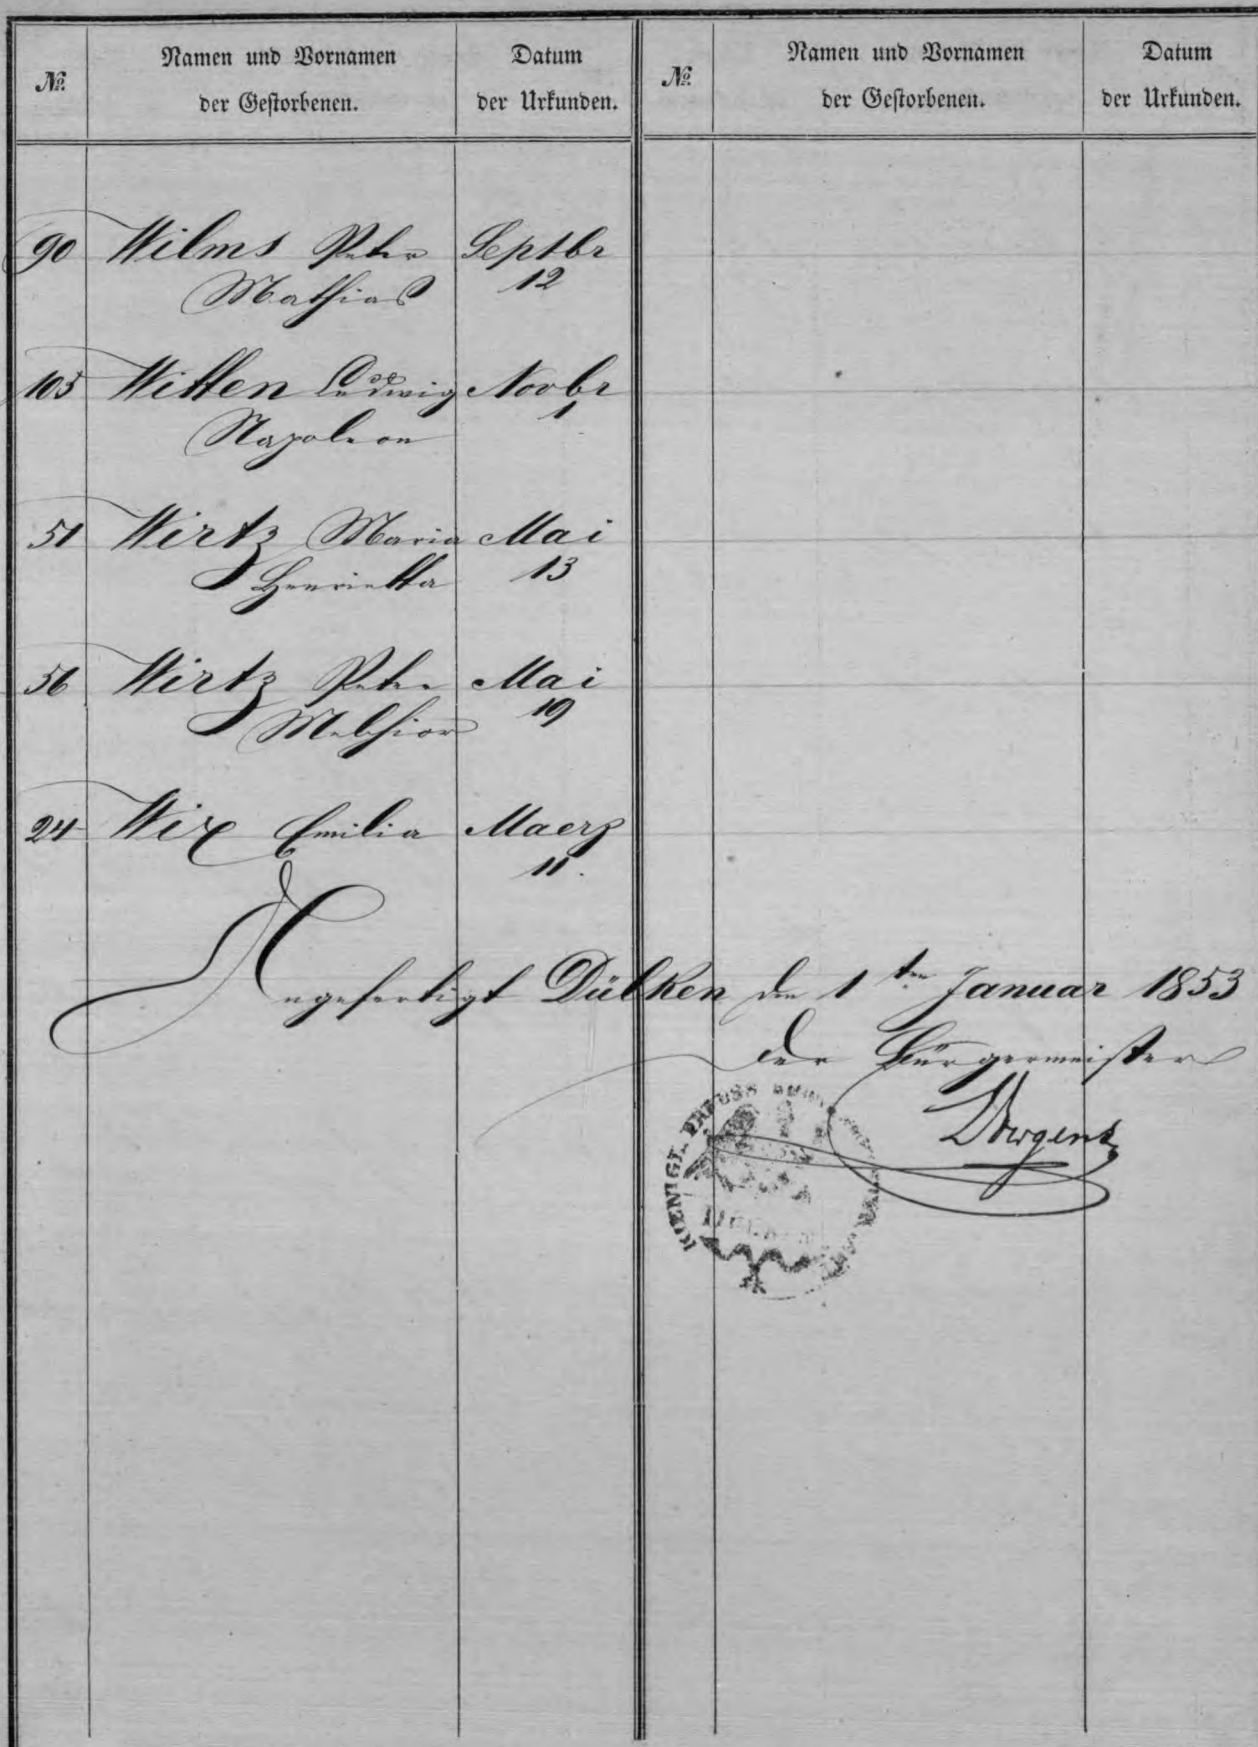 № Namen und Vornamen der Gestorbenen. Datum der Urkunden. № Namen und Vornamen der Gestorbenen. Datum der Urkunden.
90 Wilms Peter Septbr
Mathias 12
105 Witten Ludwig Novbr
Napoleon 1
51 Wirtz Maria Mai
Henrietta 13
56 Wirtz Peter Mai
Melchior 19
24 Wix Emilia Maerz
11.
Angefertigt Dülken den 1ten Januar 1853
Der Bürgermeister
KOENIGL. PREUSS